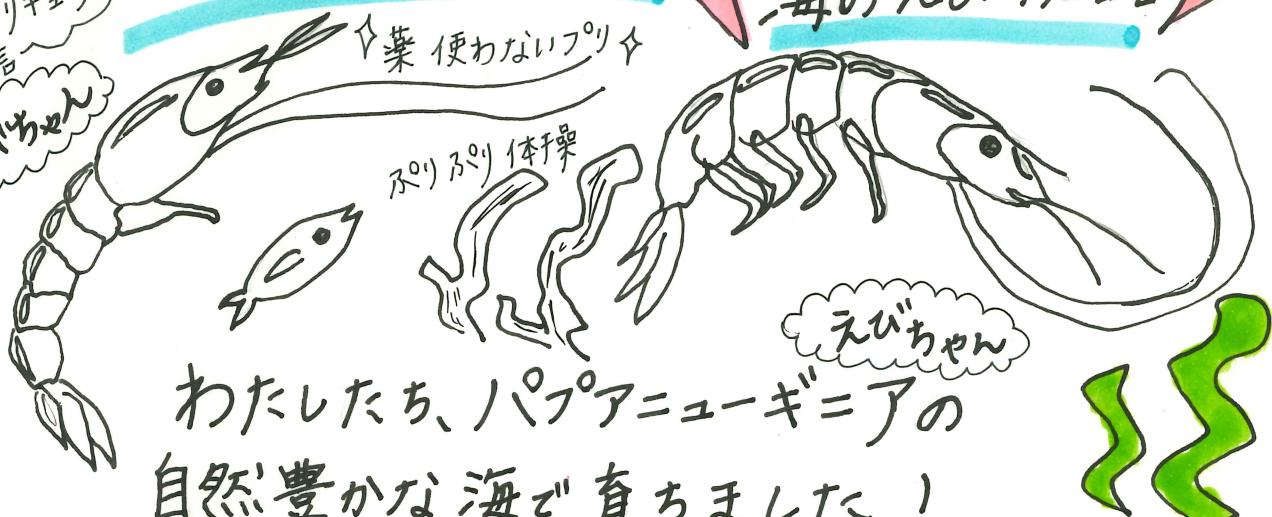 薬 使わないプリ
ぷりぷり体操
えびちゃん
わたしたち、パプアニューギニアの
自然豊かな海で育ちました！